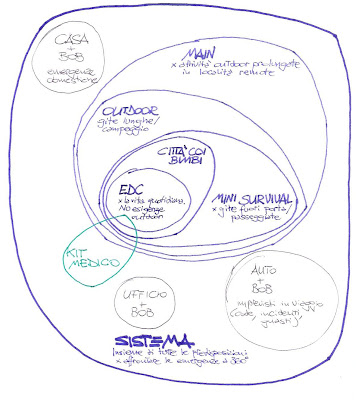 CASA
+
BOB
emergenze
domestiche
MAIN
x attività outdoor prolungate
in località remote
OUTDOOR
gite lunghe/
campeggio
CITTÀ COI
BIMBI
EDC
x la vita quotidiana
No esigenze
outdoor
MINI SURVIVAL
x gite fuori porta/
passeggiate
KIT
MEDICO
UFFICIO
+
BOB
AUTO
+
BOB
imprevisti in viaggio
(code, incidenti,
guasti)
SISTEMA
Insieme di tutte le predisposizioni
x affrontare le emergenze a 360°